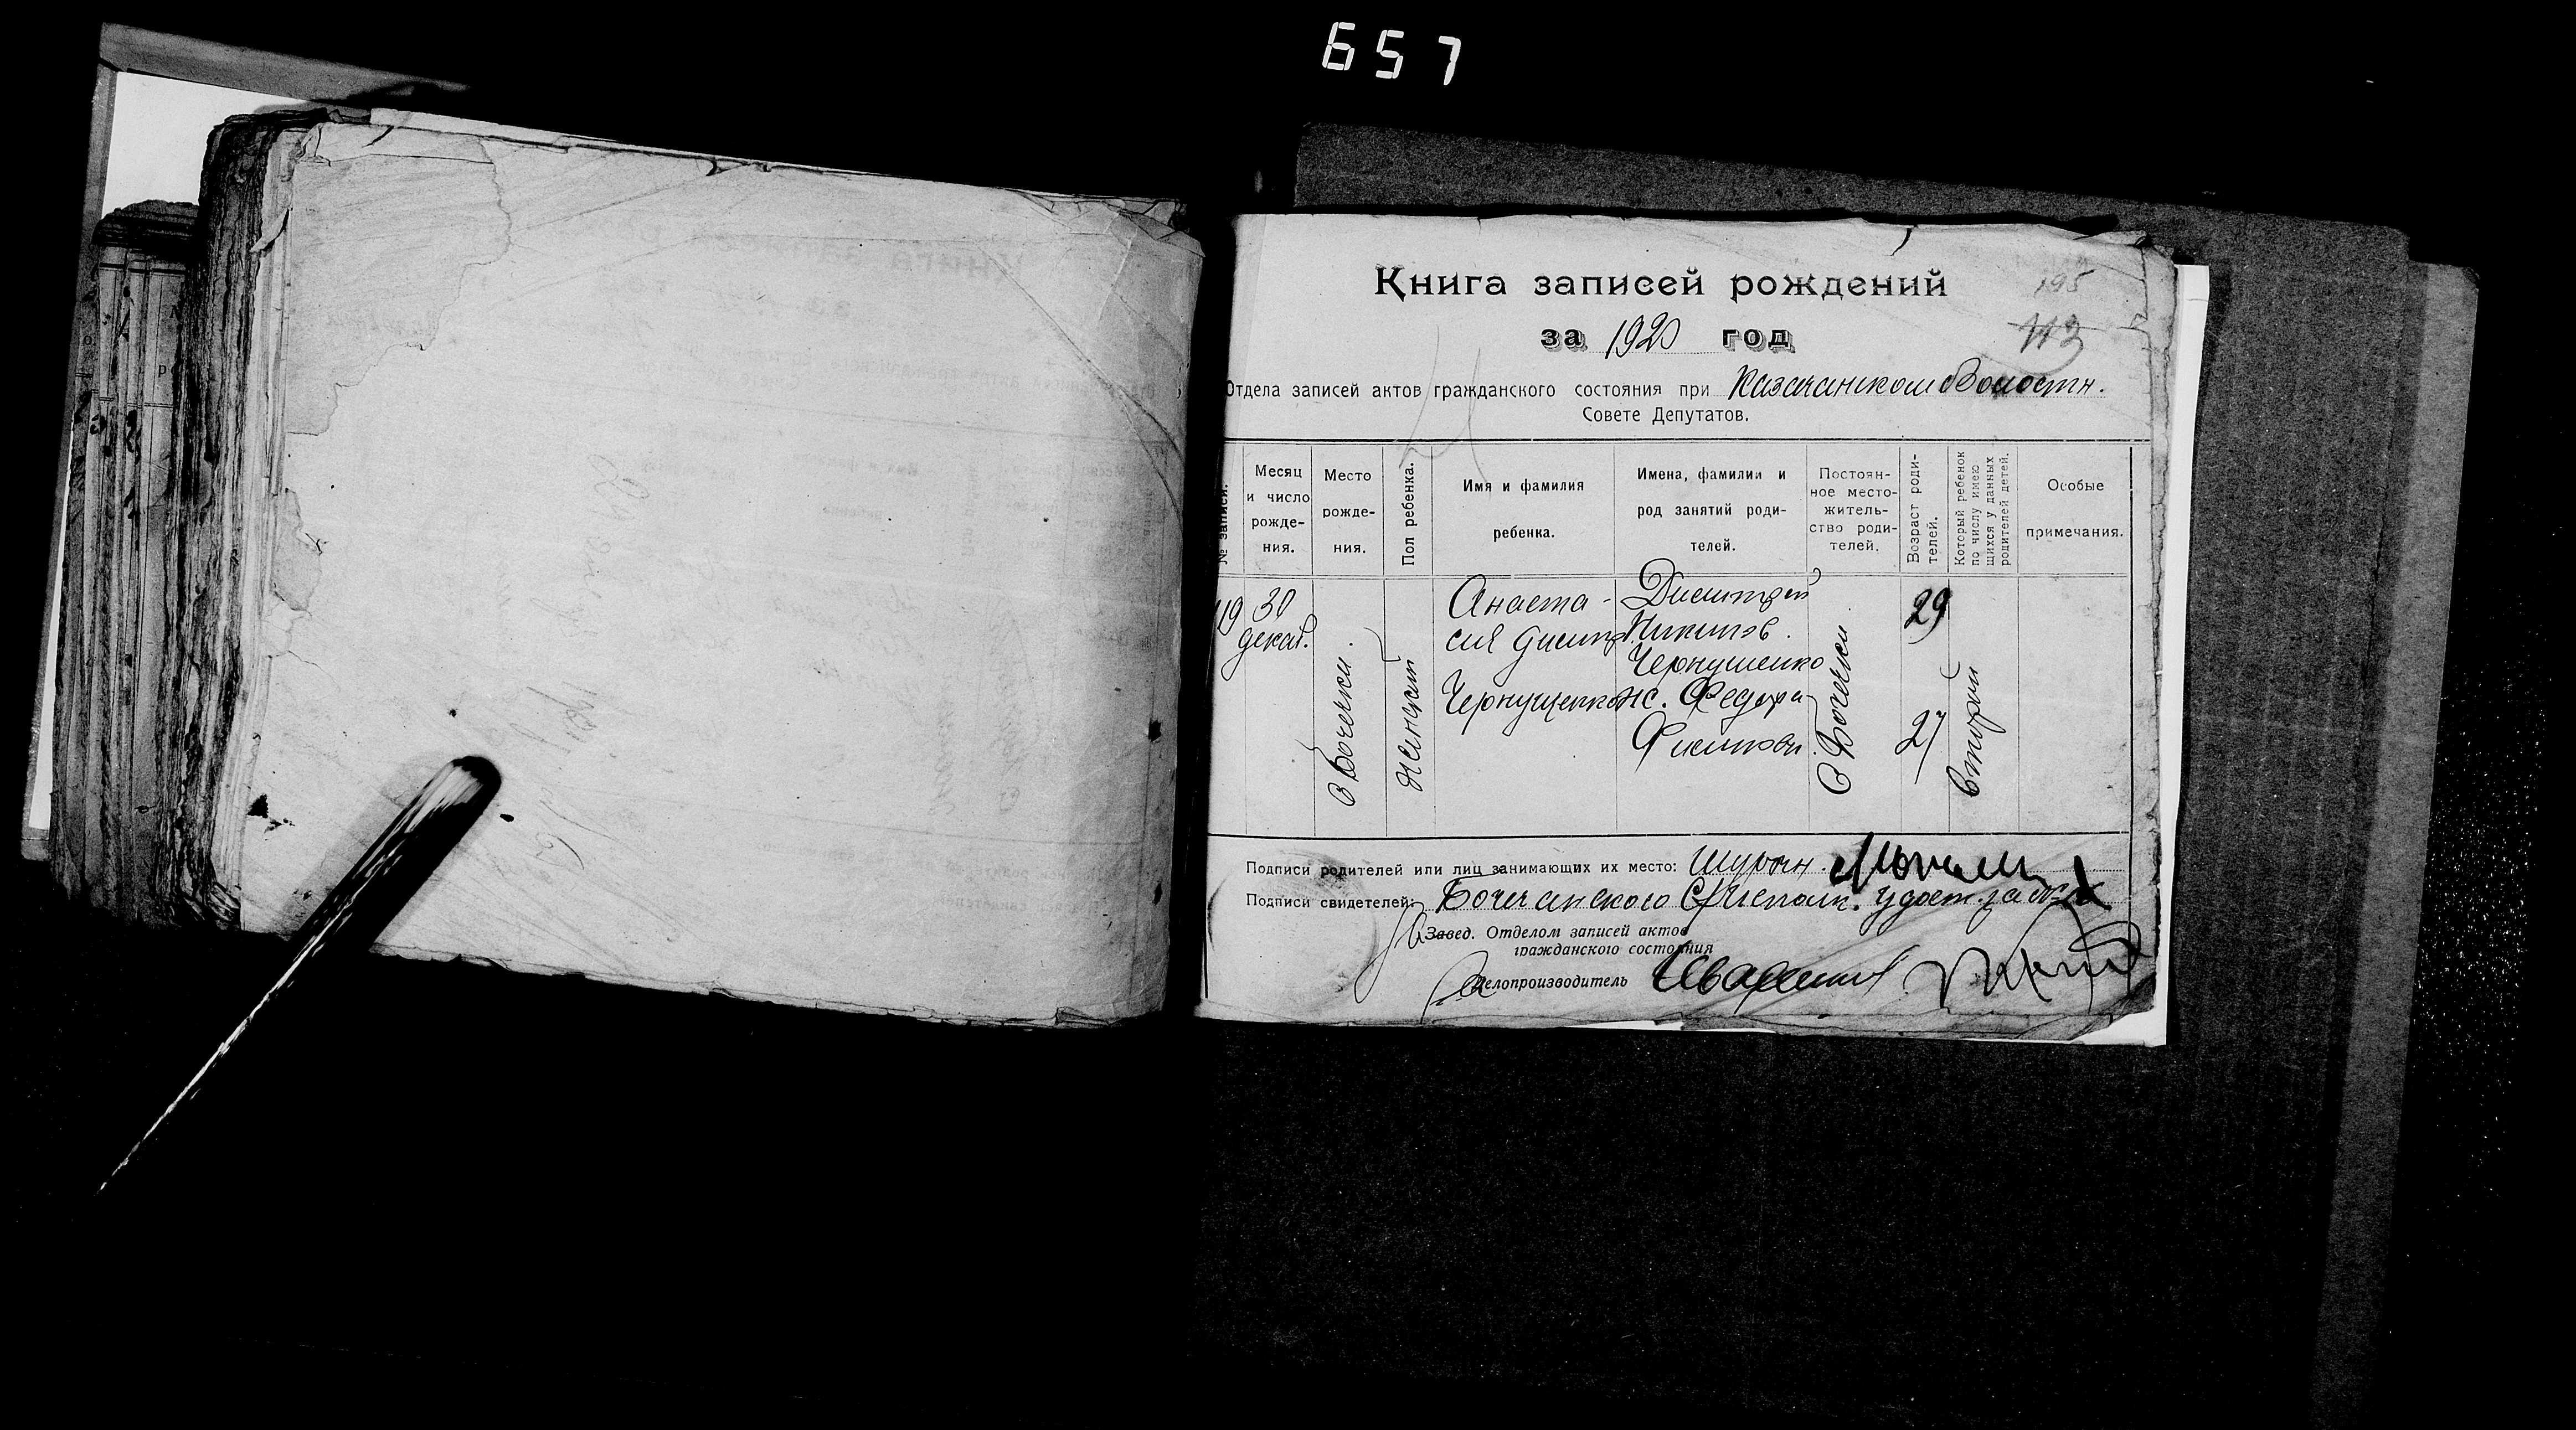 657
Книга записей рождений
195
за 1920 год
113
Отдела записей актов гражданского состояния при Казачанском Волостн.
Совете Депутатов.
№ записи.
Месяц и число рожде- ния.
Место рожде- ния.
Пол ребенка.
Имя и фамилия ребенка.
Имена, фамилии и род занятий роди- телей.
Постоян- ное место- житель- ство роди- телей.
Возраст роди- телей.
Который ребенок по числу имею щихся у данных родителей детей.
Особые примечания.
119
30 декаб.
с Бочечки.
женский
Анаста-
сия Димитр
Чернушенко
Димитрий
Никитов.
Чернушенко
ж. Федора
Филипова.
с Бочечки
29
27
второй
Подписи родителей или лиц занимающих их место:
Подписи свидетелей: Бочечанского
Завед. Отделом записей актов
гражданского состояния
Делопроизводитель